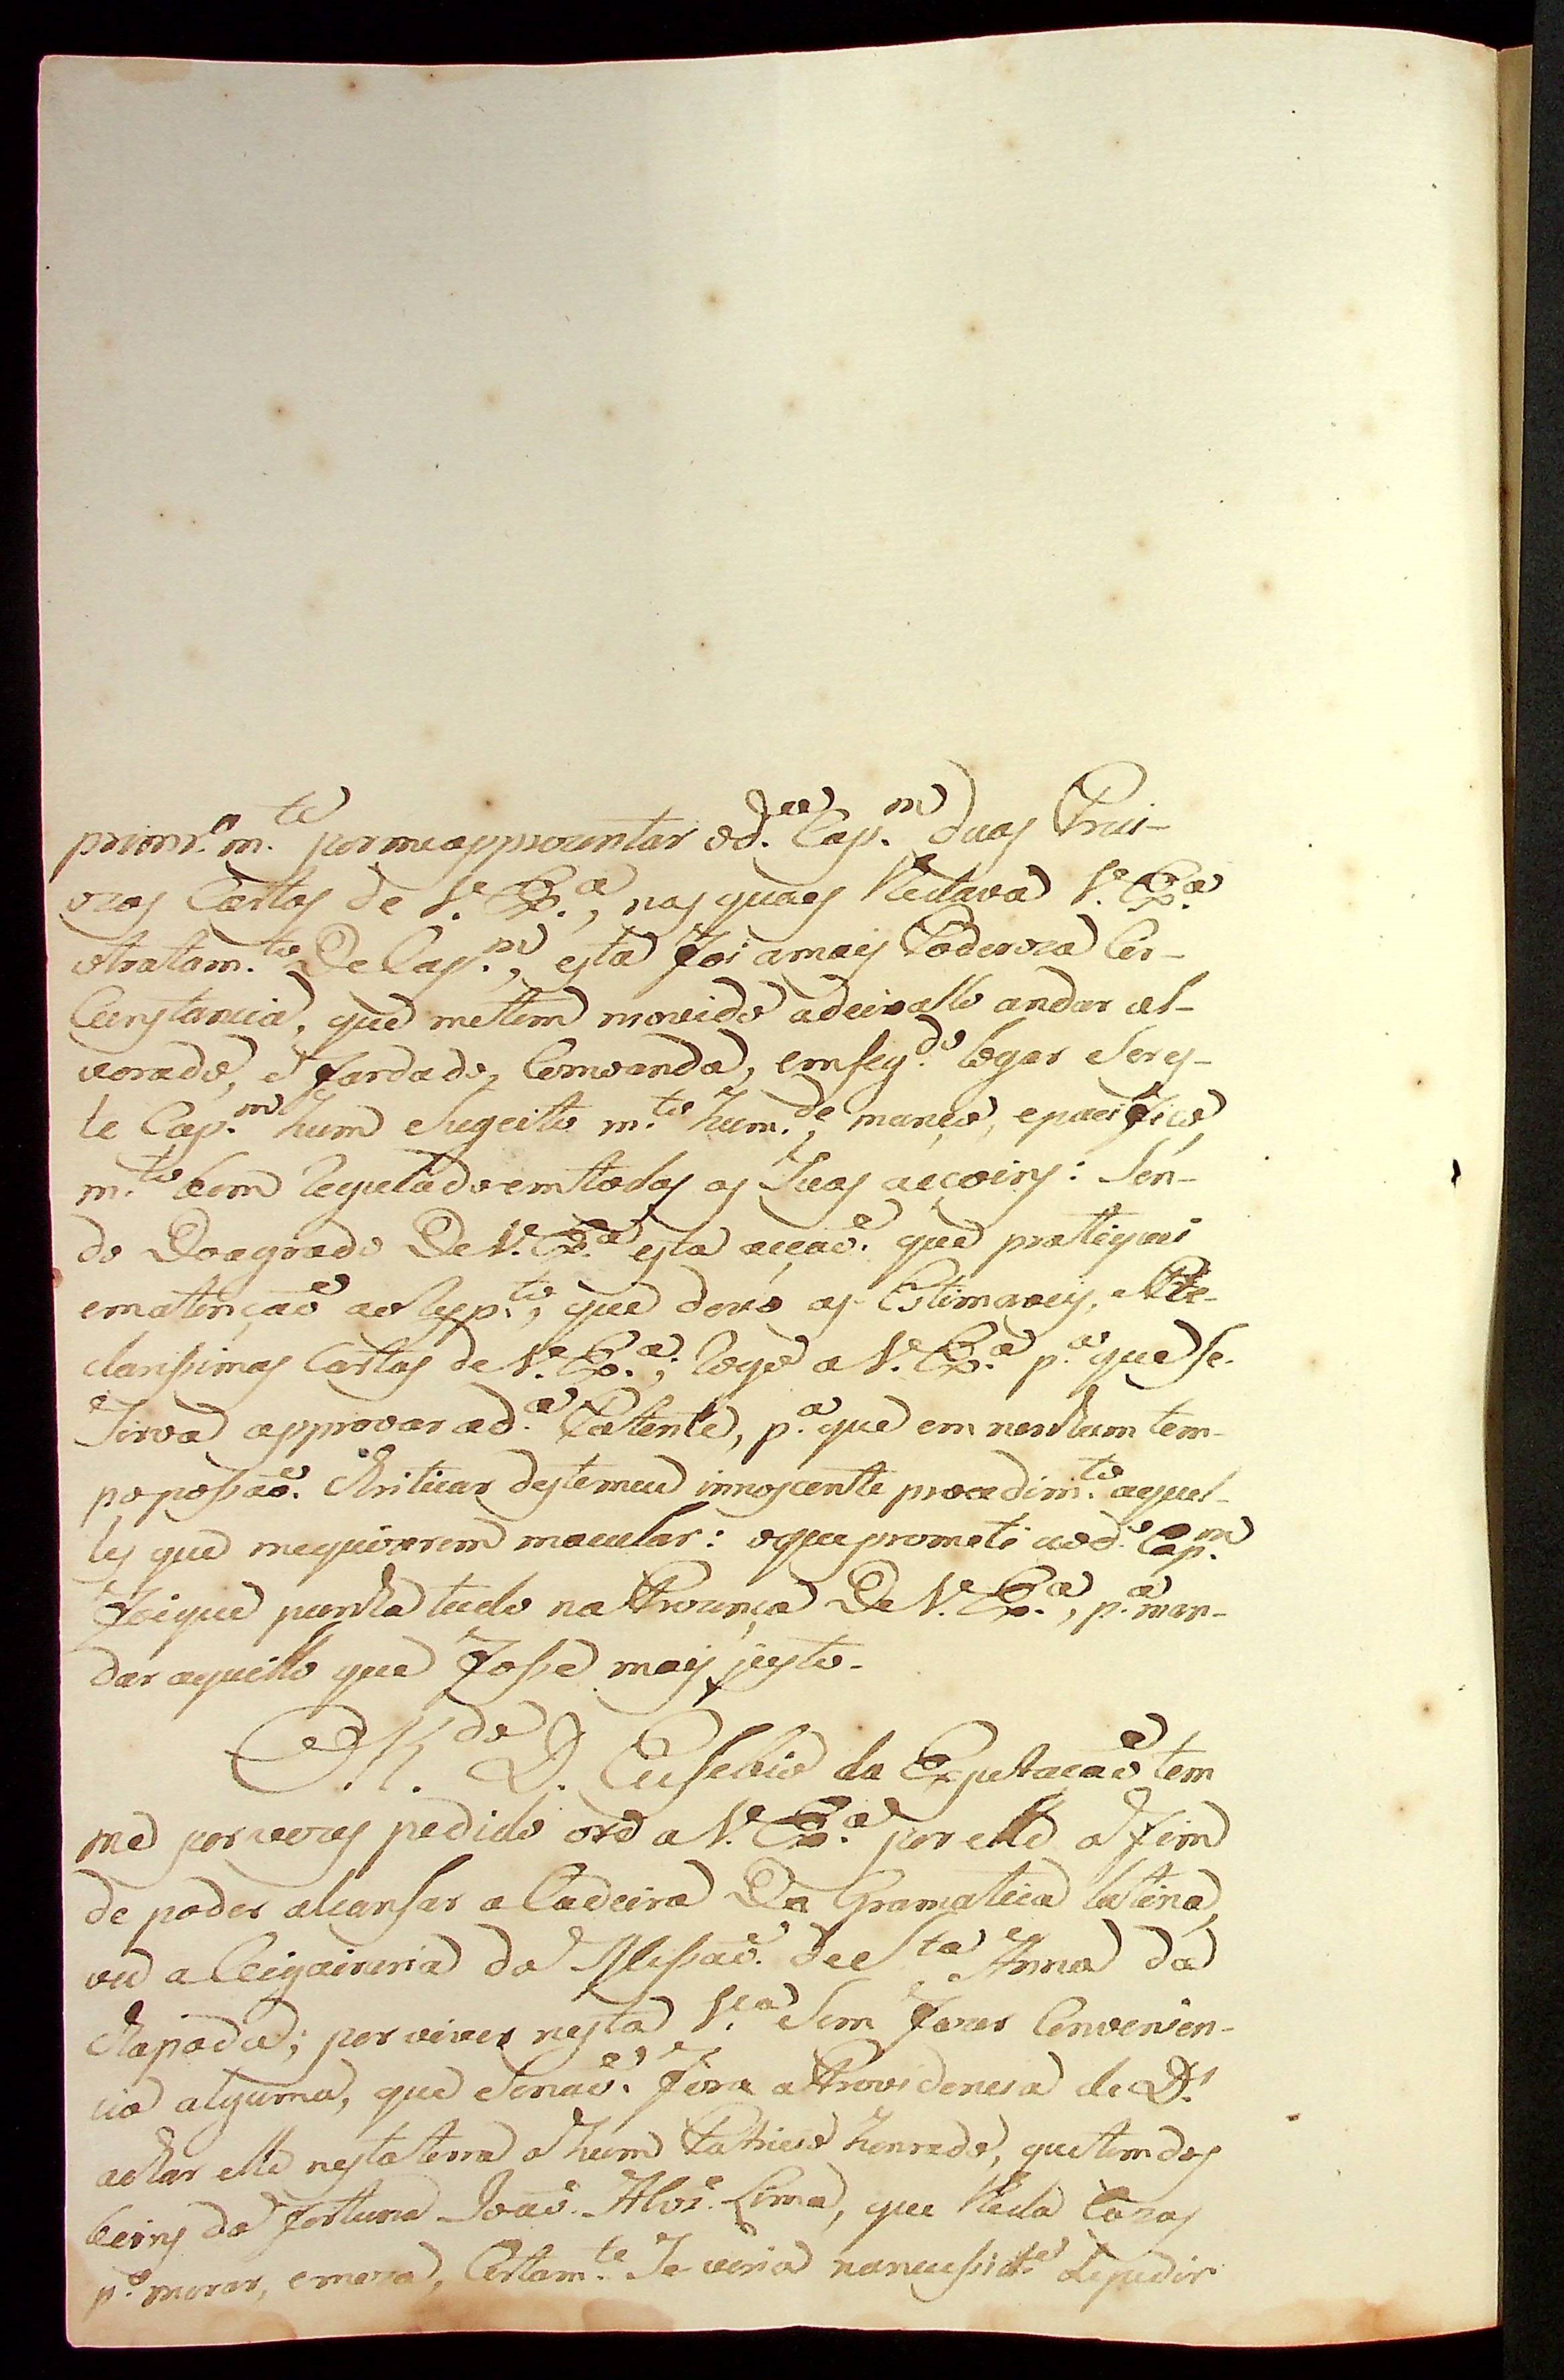 primr.o m.te por me appresentar o d.o Cap.m duas Prici-
ozas Cartas de V. Ex.a, nas quaes lhe dava V. Ex.a
o tratam.to De Cap.m, esta foi a mais Poderoza Cir-
Cunstancia, que me tem movido a deixallo andar al-
vorado, e fardado, Com banda, em seg.do logar Ser es-
te Cap.m hum Sugeito m.to hum.de, manço, e pacifico,
m.to bem Regulado em todas as Suas acçoins: Sen-
do Do agrado De V. Ex.a esta acçaõ. que pratiquei
em atençaõ ao Resp.to, que devo as Estimaveis, e Pre-
clarissimas Cartas de V. Ex.a; Rogo a V. Ex.a p.a que se-
Sirva approvar a d.a Patente, p.a que em nenhum tem-
po possaõ. Chriticar deste meu innoscente procedim.to aquel-
les que me quizerem macular: o que prometi ao d.o Cap.m
Foi que punha tudo na Prezença De V. Ex.a, p.a man-
dar aquillo que Fosse mais justo.
O R.do D. Euzebio da Expectaçaõ tem
me por vezes pedido ord a V. Ex.a por elle a fim
de poder alcansar a Cadeira Da Gramatica latina,
ou a Vigairaria da Missaõ. de S.ta Anna da
Chapada; por viver nesta V.a Sem Fazer Convenien-
cia alguma, que Senaõ. Fora a Providencia de D.s
achar elle nesta terra a hum Patricio honrado, que tem dos
beins da fortuna Joaõ. Alvz. Lima, que lhe da Cazas
p.a morar, e meza, Certam.te Se veria na necessid.e de pedir